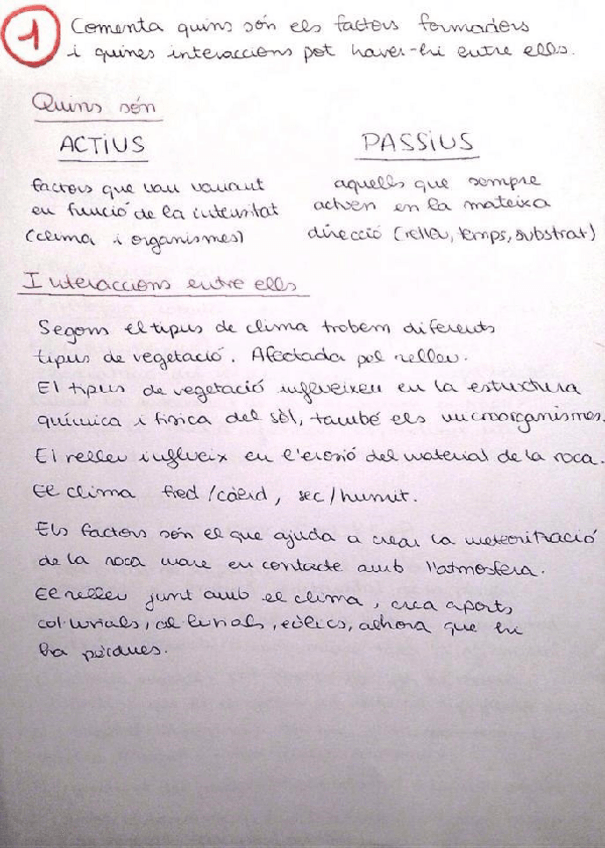 1 Comenta quins són els factors formadors
i quines interaccions pot haver-hi entre ells.
Quins són
ACTIUS
PASSIUS
factors que van variant
en funció de la intensitat
(clima i organismes)
aquells que sempre
actuen en la mateixa
direcció (relleu, temps, substrat)
Interaccions entre ells
Segons el tipus de clima trobem diferents
tipus de vegetació. Afectada pel relleu.
El tipus de vegetació influeixen en la estructura
química i física del sòl, també els microorganismes.
El relleu influeix en l'erosió del material de la roca.
El clima fred/càlid, sec/humit.
Els factors són el que ajuda a crear la meteorització
de la roca mare en contacte amb l'atmosfera.
El relleu junt amb el clima, crea aports
col·luvials, al·luvials, eòlics, alhora que hi
ha pèrdues.